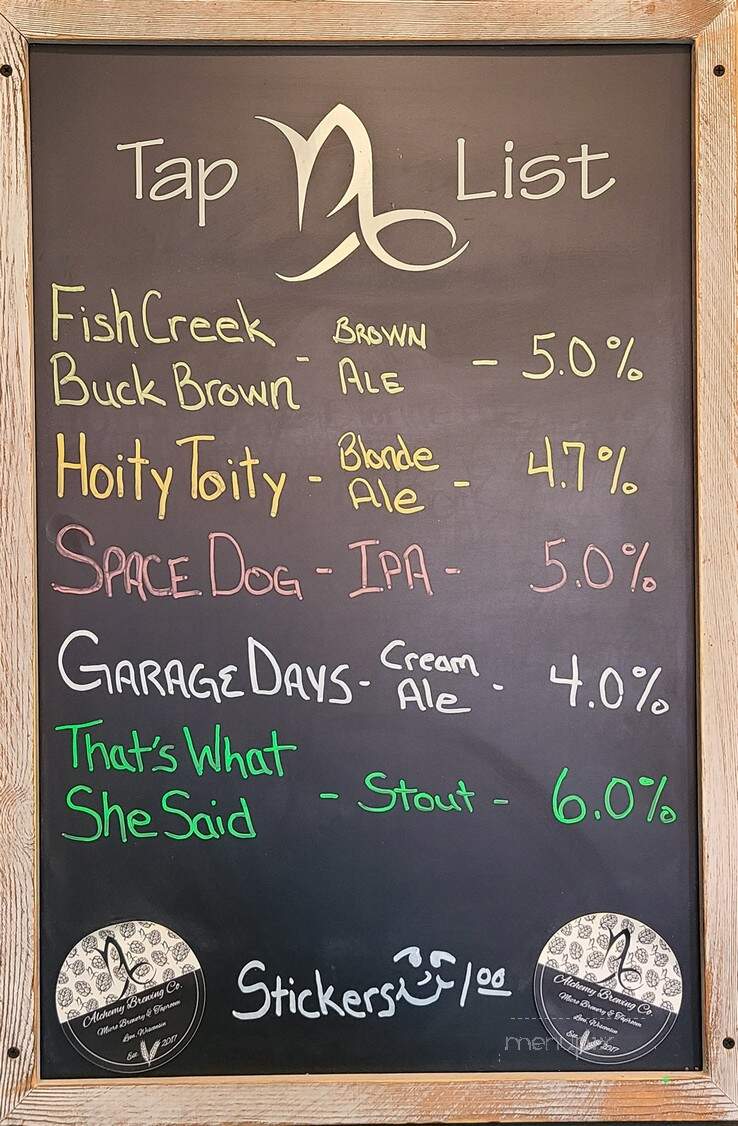 Tap List
Fish Creek
Buck Brown - Brown Ale - 5.0%
Hoity Toity - Blonde Ale - 4.7%
Space Dog - IPA - 5.0%
Garage Days - Cream Ale - 4.0%
That's What
She Said - Stout - 6.0%
Stickers 1.00
Alchemy Brewing Co.
Micro Brewery & Taproom
Luxemburg, Wisconsin
Est. 2017
Alchemy Brewing Co.
Micro Brewery & Taproom
Wisconsin
Est. 2017